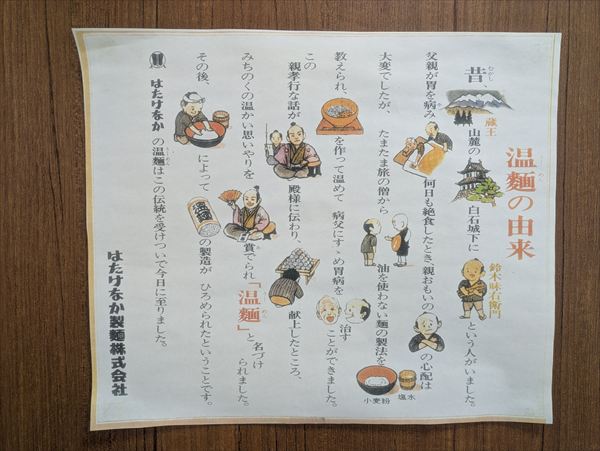 温麺の由来
昔、蔵王山麓の白石城下に鈴木味右衛門という人がいました。
父親が胃を病み何日も絶食したとき、親おもいのの心配は
大変でしたが、たまたま旅の僧から油を使わない麺の製法を
小麦粉 塩水
教えられ、を作って温めて病父にすゝめ胃病を治すことができました。
この親孝行な話が殿様に伝わり、献上したところ、
みちのくの温かい思いやりを賞でられ「温麺」と名づけられました。
その後、によって温麺の製造がひろめられたということです。
はたけなかの温麺はこの伝統を受けついで今日に至りました。
はたけなか製麺株式会社